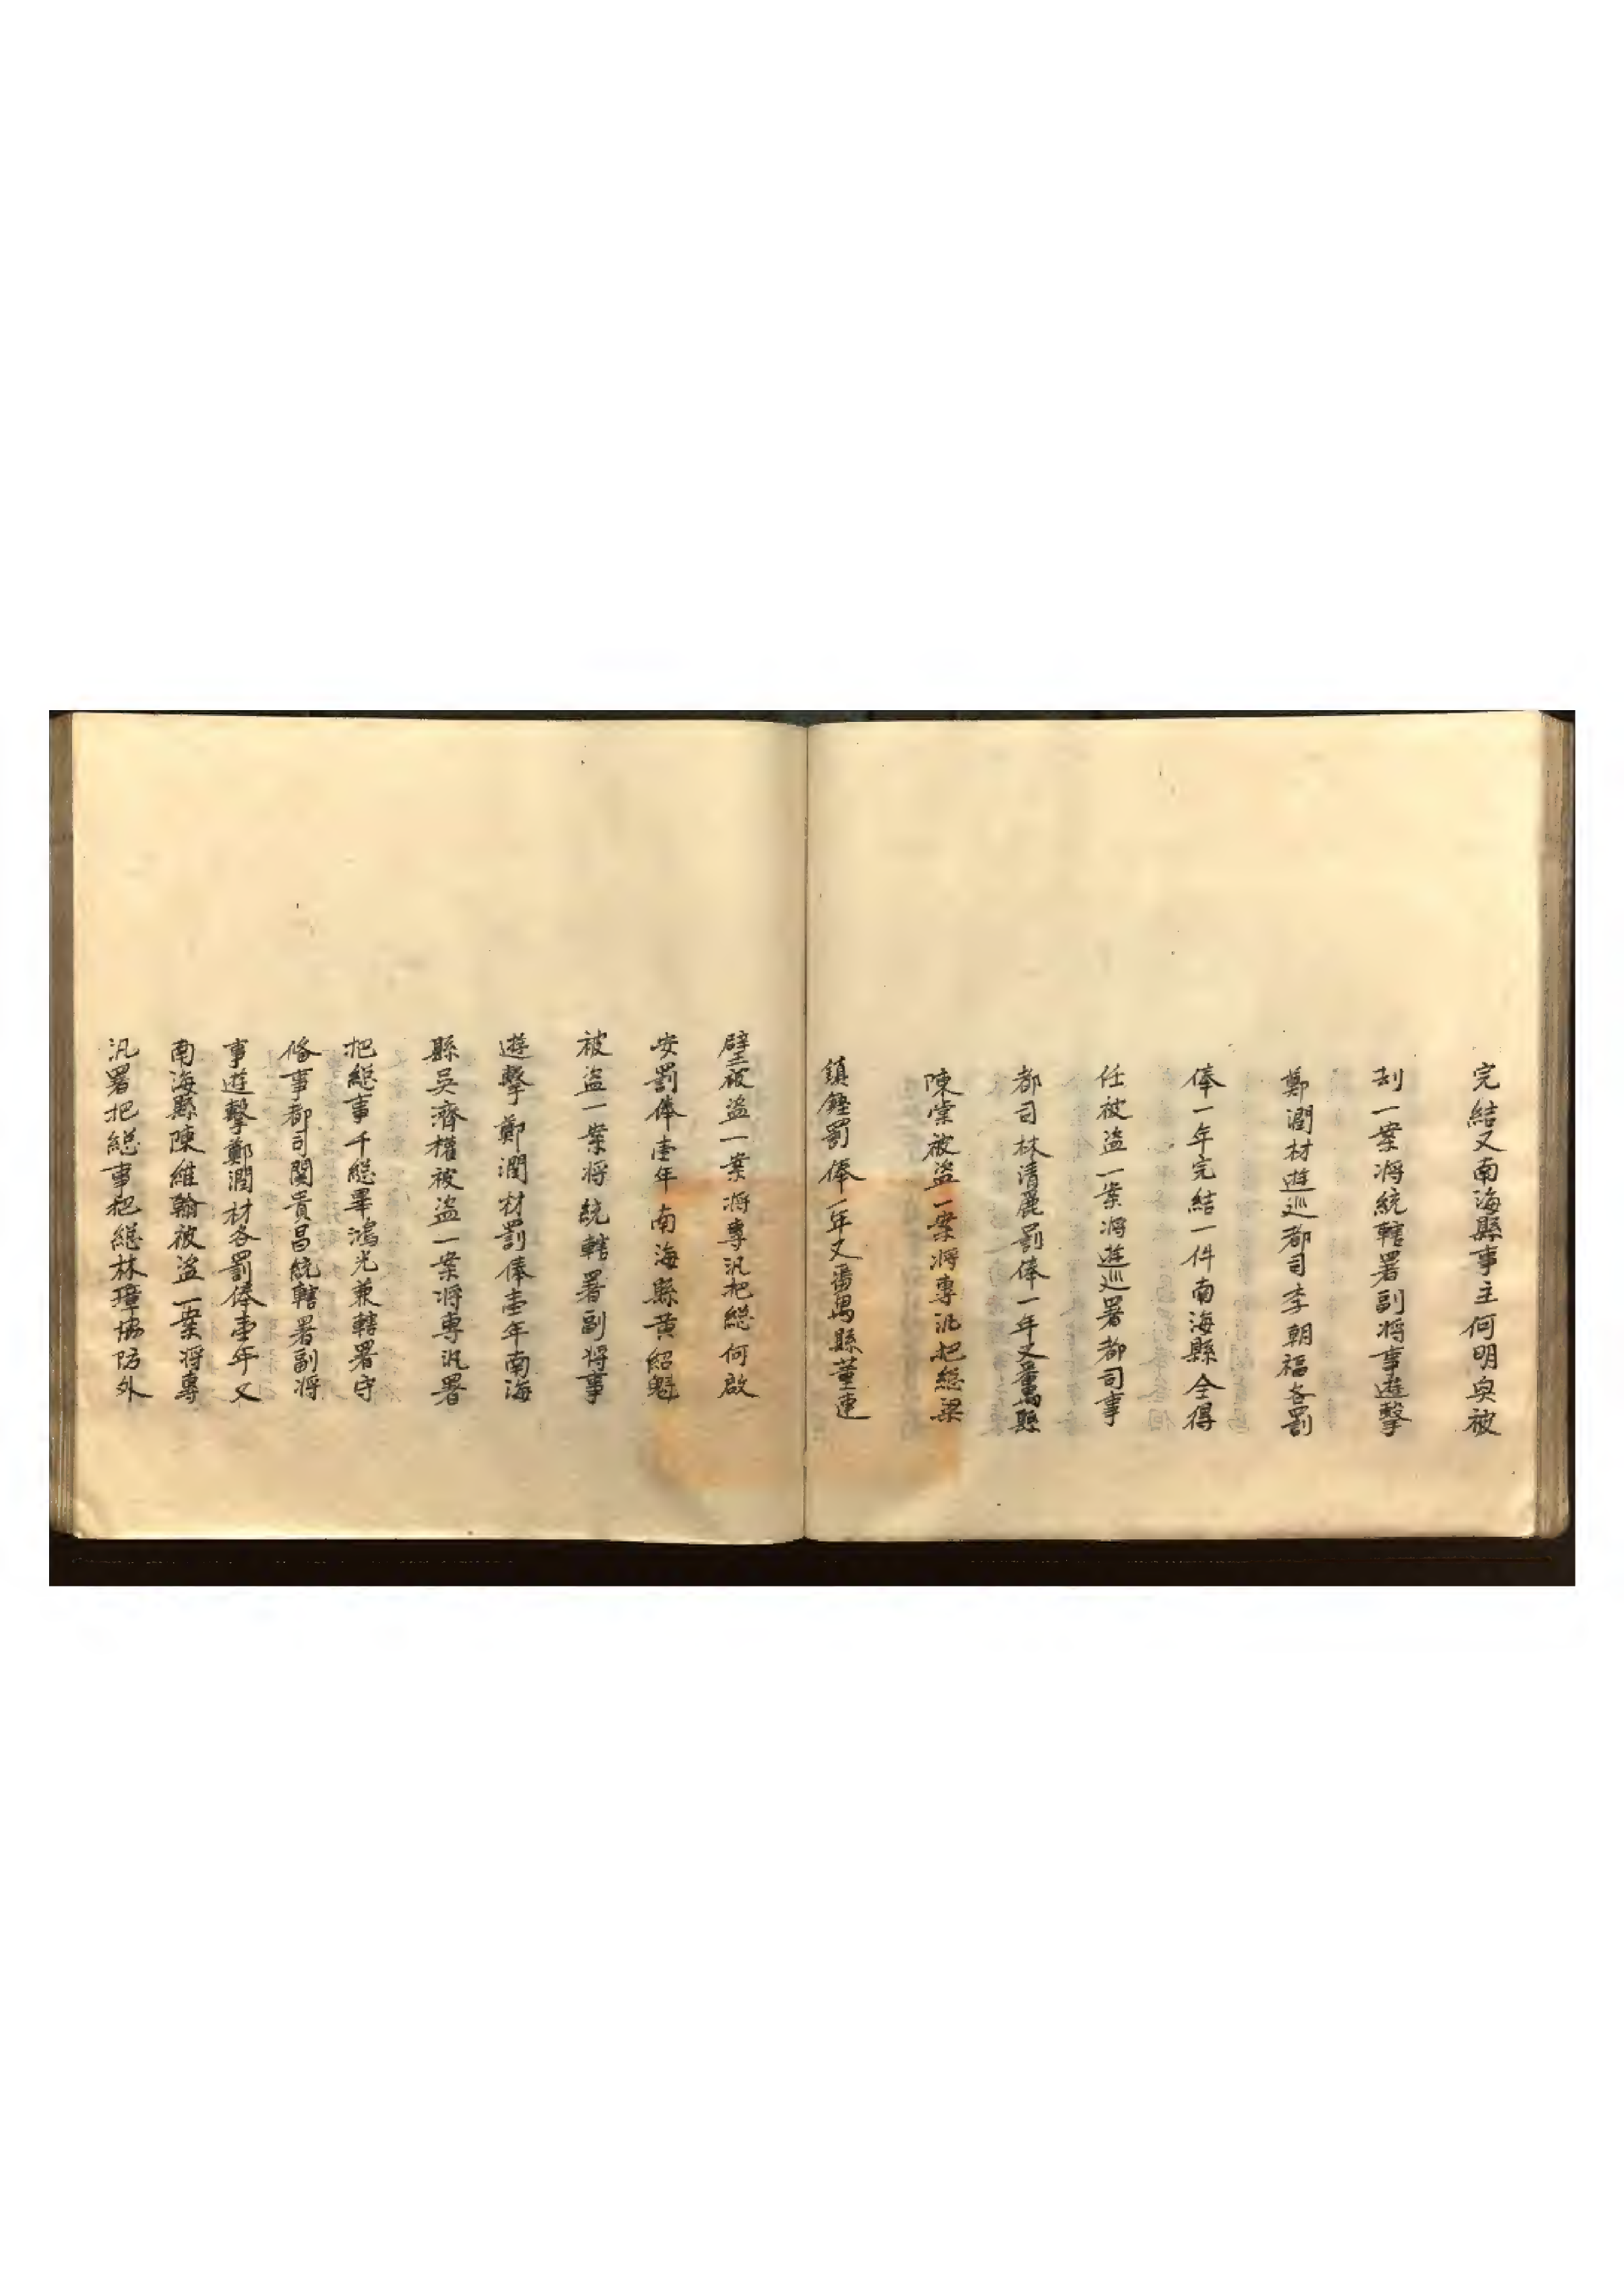 完結又南海縣事主何明奐被
刦一案將統轄署副將事遊擊
鄭潤材遊巡都司李朝福各罰
俸一年完結一件南海縣全得
任被盜一案將遊巡署都司事
都司林清麗罰俸一年又番禺縣
陳棠被盜一案將專汛把總梁
鎮鏗罰俸一年又番禺縣董連
璧被盜一案將專汛把總何啟
安罰俸壹年南海縣黃紹魁
被盜一案將統轄署副將事
遊擊鄭潤材罰俸壹年南海
縣吳濟權被盜一案將專汛署
把總事千總畢鴻光兼轄署守
俻事都司関貴昌統轄署副將
事遊擊鄭潤材各罰俸壹年又
南海縣陳維翰被盜一案將專
汛署把總事把總林璋協防外